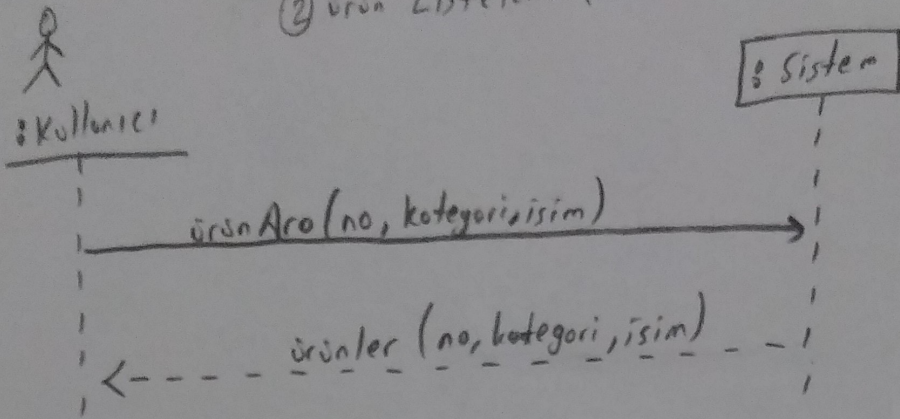 ② ürün
: Sistem
: Kullanıcı
ürünAra(no, kategori, isim)
ürünler (no, kategori, isim)